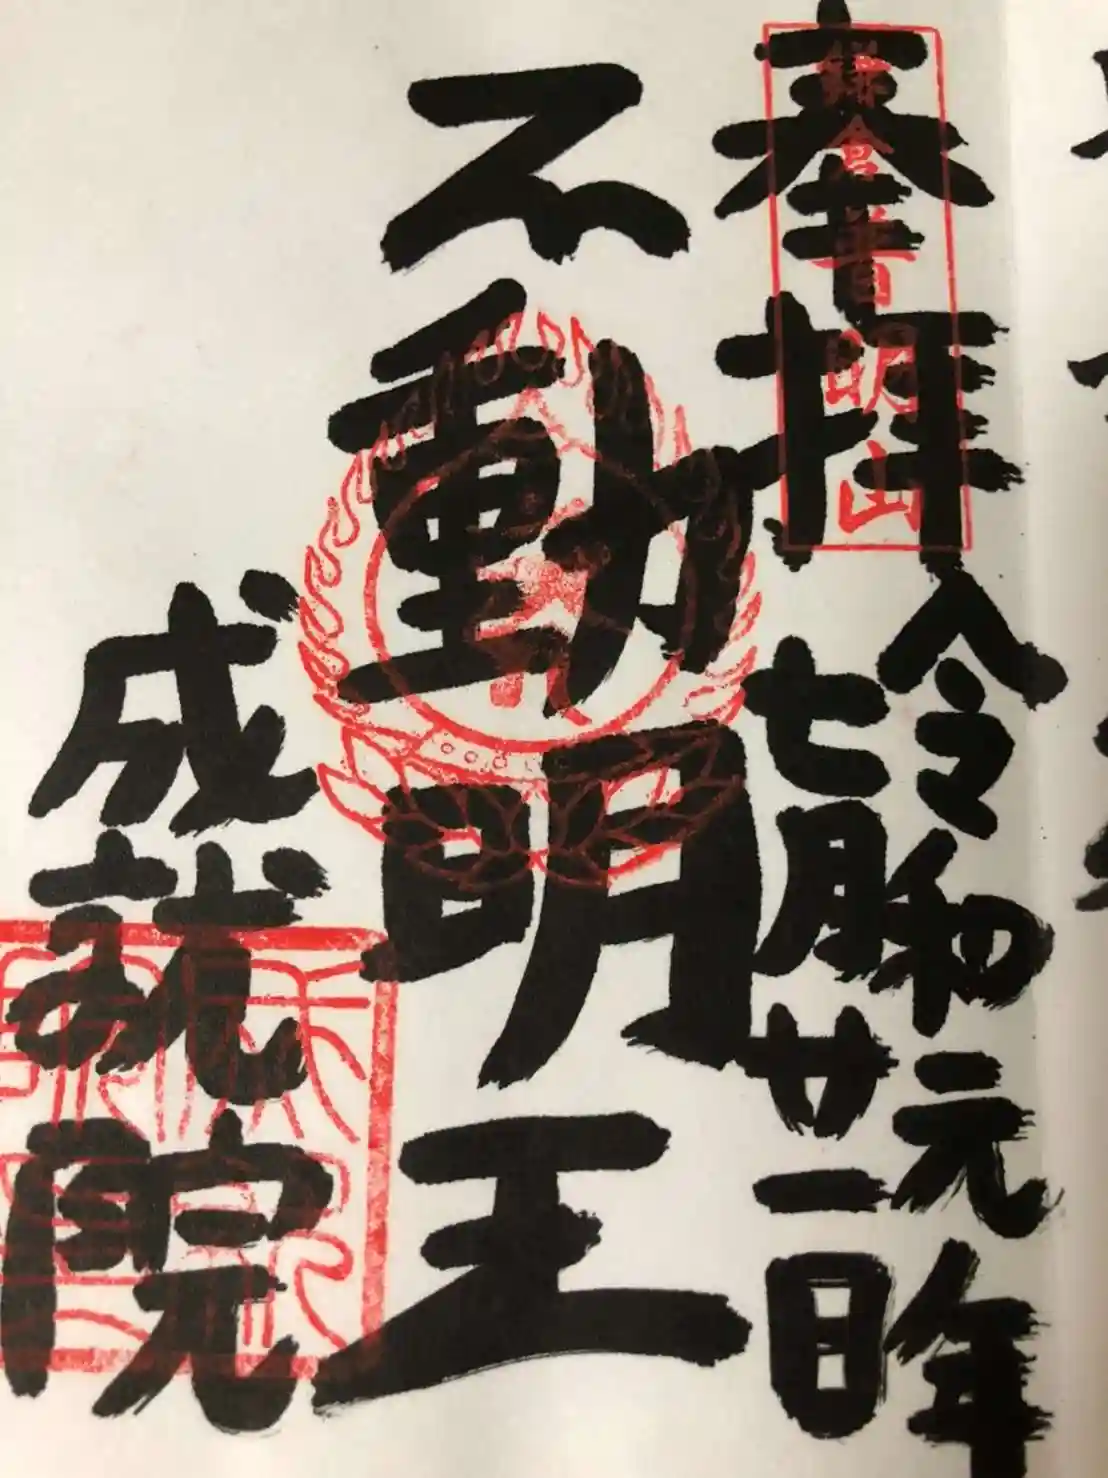 奉拝
令和元年
七月廿一日
鎌倉普明山
不動明王
成就院